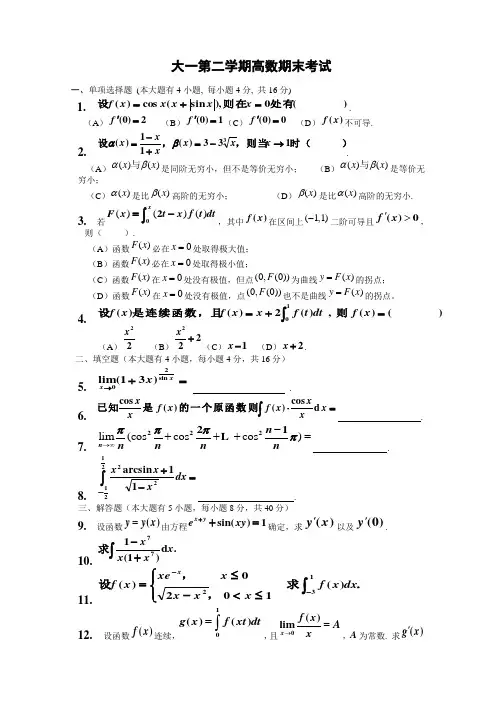 大一第二学期高数期末考试
一、单项选择题 (本大题有4小题, 每小题4分, 共16分)
1. 设f(x)=cos(x+|sin x|),则在x=0处有( ).
（A）f′(0)=2 （B）f′(0)=1（C）f′(0)=0 （D）f(x)不可导.
2. 设α(x)=(1−x)/(1+x)，β(x)=3−3∛x，则当x→1时（ ）.
（A）α(x)与β(x)是同阶无穷小，但不是等价无穷小； （B）α(x)与β(x)是等价无
穷小；
（C）α(x)是比β(x)高阶的无穷小； （D）β(x)是比α(x)高阶的无穷小.
3. 若 F(x)=∫₀ˣ(2t−x)f(t)dt ，其中f(x)在区间上(−1,1)二阶可导且f′(x)>0，
则（ ）.
（A）函数F(x)必在x=0处取得极大值；
（B）函数F(x)必在x=0处取得极小值；
（C）函数F(x)在x=0处没有极值，但点(0,F(0))为曲线y=F(x)的拐点；
（D）函数F(x)在x=0处没有极值，点(0,F(0))也不是曲线y=F(x)的拐点。
4. 设f(x)是连续函数，且f(x)=x+2∫₀¹f(t)dt，则f(x)=( )
（A）x²/2 （B）x²/2+2（C）x−1 （D）x+2.
二、填空题（本大题有4小题，每小题4分，共16分）
5. lim_{x→0}(1+3x)^{2/sin x}= .
6. 已知cos x/x是f(x)的一个原函数,则∫f(x)·cos x/x dx= .
7. lim_{n→∞} π/n(cos² π/n+cos² 2π/n+L+cos² (n−1)/n π)= .
8. ∫_{−1/2}^{1/2} (x² arcsin x+1)/√(1−x²) dx= .
三、解答题（本大题有5小题，每小题8分，共40分）
9. 设函数y=y(x)由方程e^{x+y}+sin(xy)=1确定，求y′(x)以及y′(0).
10. 求∫(1−x⁷)/(x(1+x⁷))dx.
11. 设f(x)={xe^{−x}， x≤0 ; √(2x−x²)，0<x≤1 求∫_{−3}^{1}f(x)dx.
12. 设函数f(x)连续，g(x)=∫₀¹f(xt)dt，且lim_{x→0} f(x)/x=A，A为常数. 求g′(x)